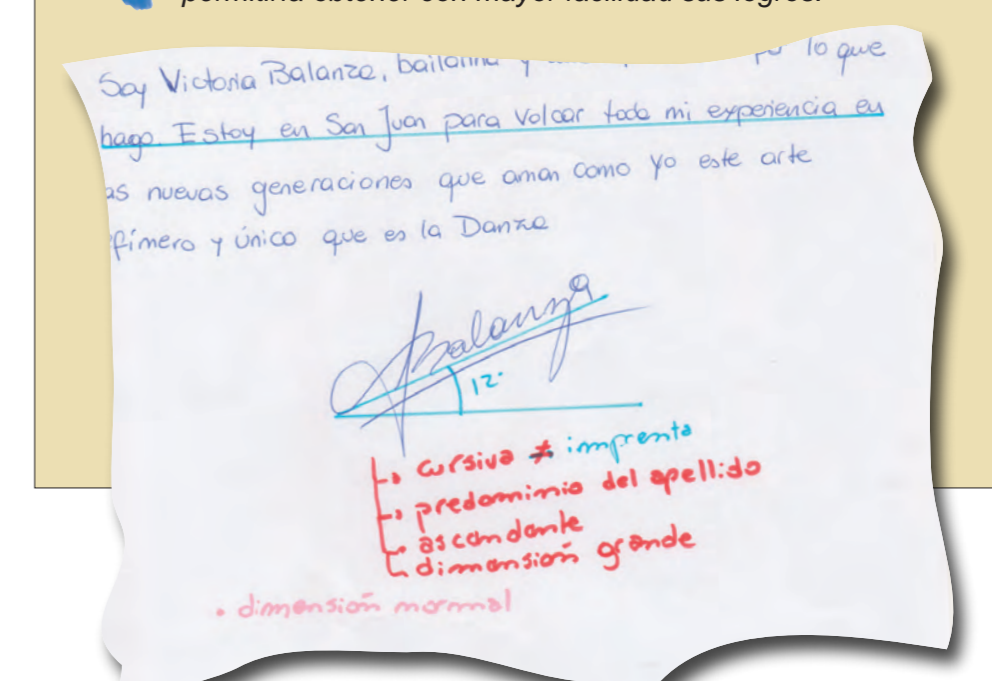 permitiría obtener con mayor facilidad sus logros.
Soy Victoria Balanza, bailarina y lo que
hago. Estoy en San Juan para volcar toda mi experiencia en
as nuevas generaciones que aman como yo este arte
fímero y único que es la Danza
Balanza
12°
cursiva ≠ imprenta
predominio del apellido
ascendente
dimensión grande
• dimensión normal